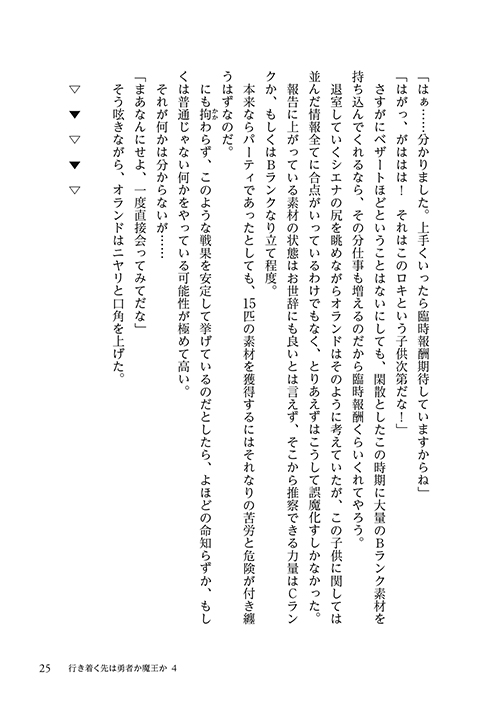 「はぁ……分かりました。上手くいったら臨時報酬期待していますからね」
「はがっ、がははは！　それはこのロキという子供次第だな！」
さすがにベザートほどということはないにしても、閑散としたこの時期に大量のＢランク素材を
持ち込んでくれるなら、その分仕事も増えるのだから臨時報酬くらいくれてやろう。
退室していくシエナの尻を眺めながらオランドはそのように考えていたが、この子供に関しては
並んだ情報全てに合点がいっているわけでもなく、とりあえずはこうして誤魔化すしかなかった。
報告に上がっている素材の状態はお世辞にも良いとは言えず、そこから推察できる力量はＣラン
クか、もしくはＢランクなり立て程度。
本来ならパーティであったとしても、15匹の素材を獲得するにはそれなりの苦労と危険が付き纏
うはずなのだ。
にも拘わらず、このような戦果を安定して挙げているのだとしたら、よほどの命知らずか、もし
かか
くは普通じゃない何かをやっている可能性が極めて高い。
それが何かは分からないが……
「まあなんにせよ、一度直接会ってみてだな」
そう呟きながら、オランドはニヤリと口角を上げた。
▽　▼　▽　▼　▽
25　行き着く先は勇者か魔王か　4